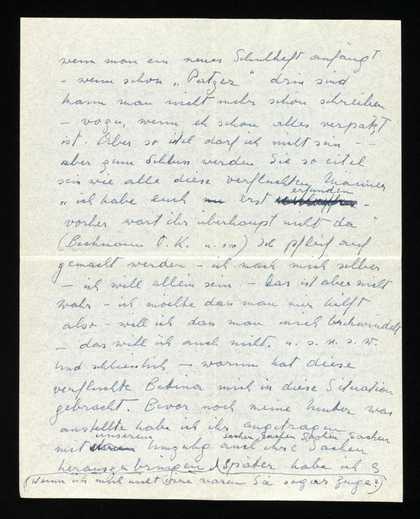 wenn man ein neues Schulheft anfängt
– wenn schon „Patzer" drin sind
kann man nicht mehr schön schreiben
– wozu, wenn eh schon alles verpatzt
ist. Aber so eitel darf ich nicht sein –
aber zum Schluss werden Sie so eitel
sein wie alle diese verfluchten Männer
„ich habe euch erst erfunden –
vorher wart ihr überhaupt nicht da"
(Beckmann O.K. u.s.w) Ich pfeif auf
gemacht werden – ich mach mich selber
– ich will allein sein – das ist aber nicht
wahr – ich möchte dass man mir hilft
also – will ich dass man mich
– das will ich auch nicht. u. s. w. s. w.
Und schliesslich – warum hat diese
verfluchte Bettina mich in diese Situation
gebracht. Bevor noch meine Mutter was
anstellte habe ich ihr angetragen
mit unserem Umzug auch ihre Sachen
herauszubringen. Später habe ich 3
(wenn ich mich nicht irre waren Sie sogar Zeuge?)